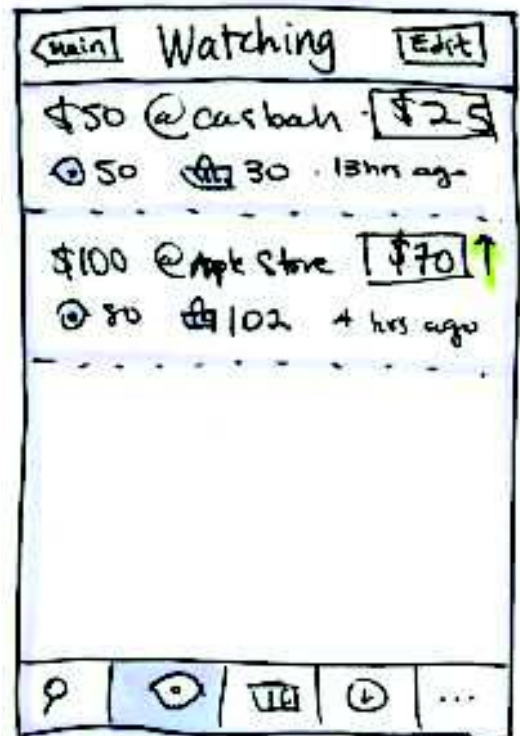 Main Watching Edit
$50 @ casbah · $25
50 30 · 13hrs ago
$100 @ Apple Store $70 ↑
80 102 4 hrs ago
...